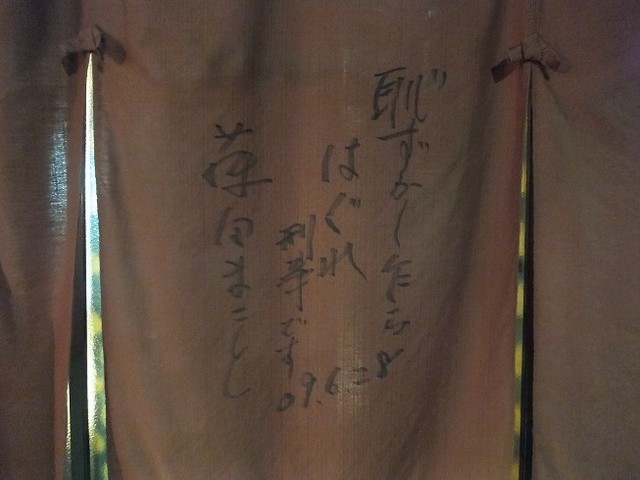 恥ずかし乍ら
はぐれ
刑事です
09.6.28
藤田まこと